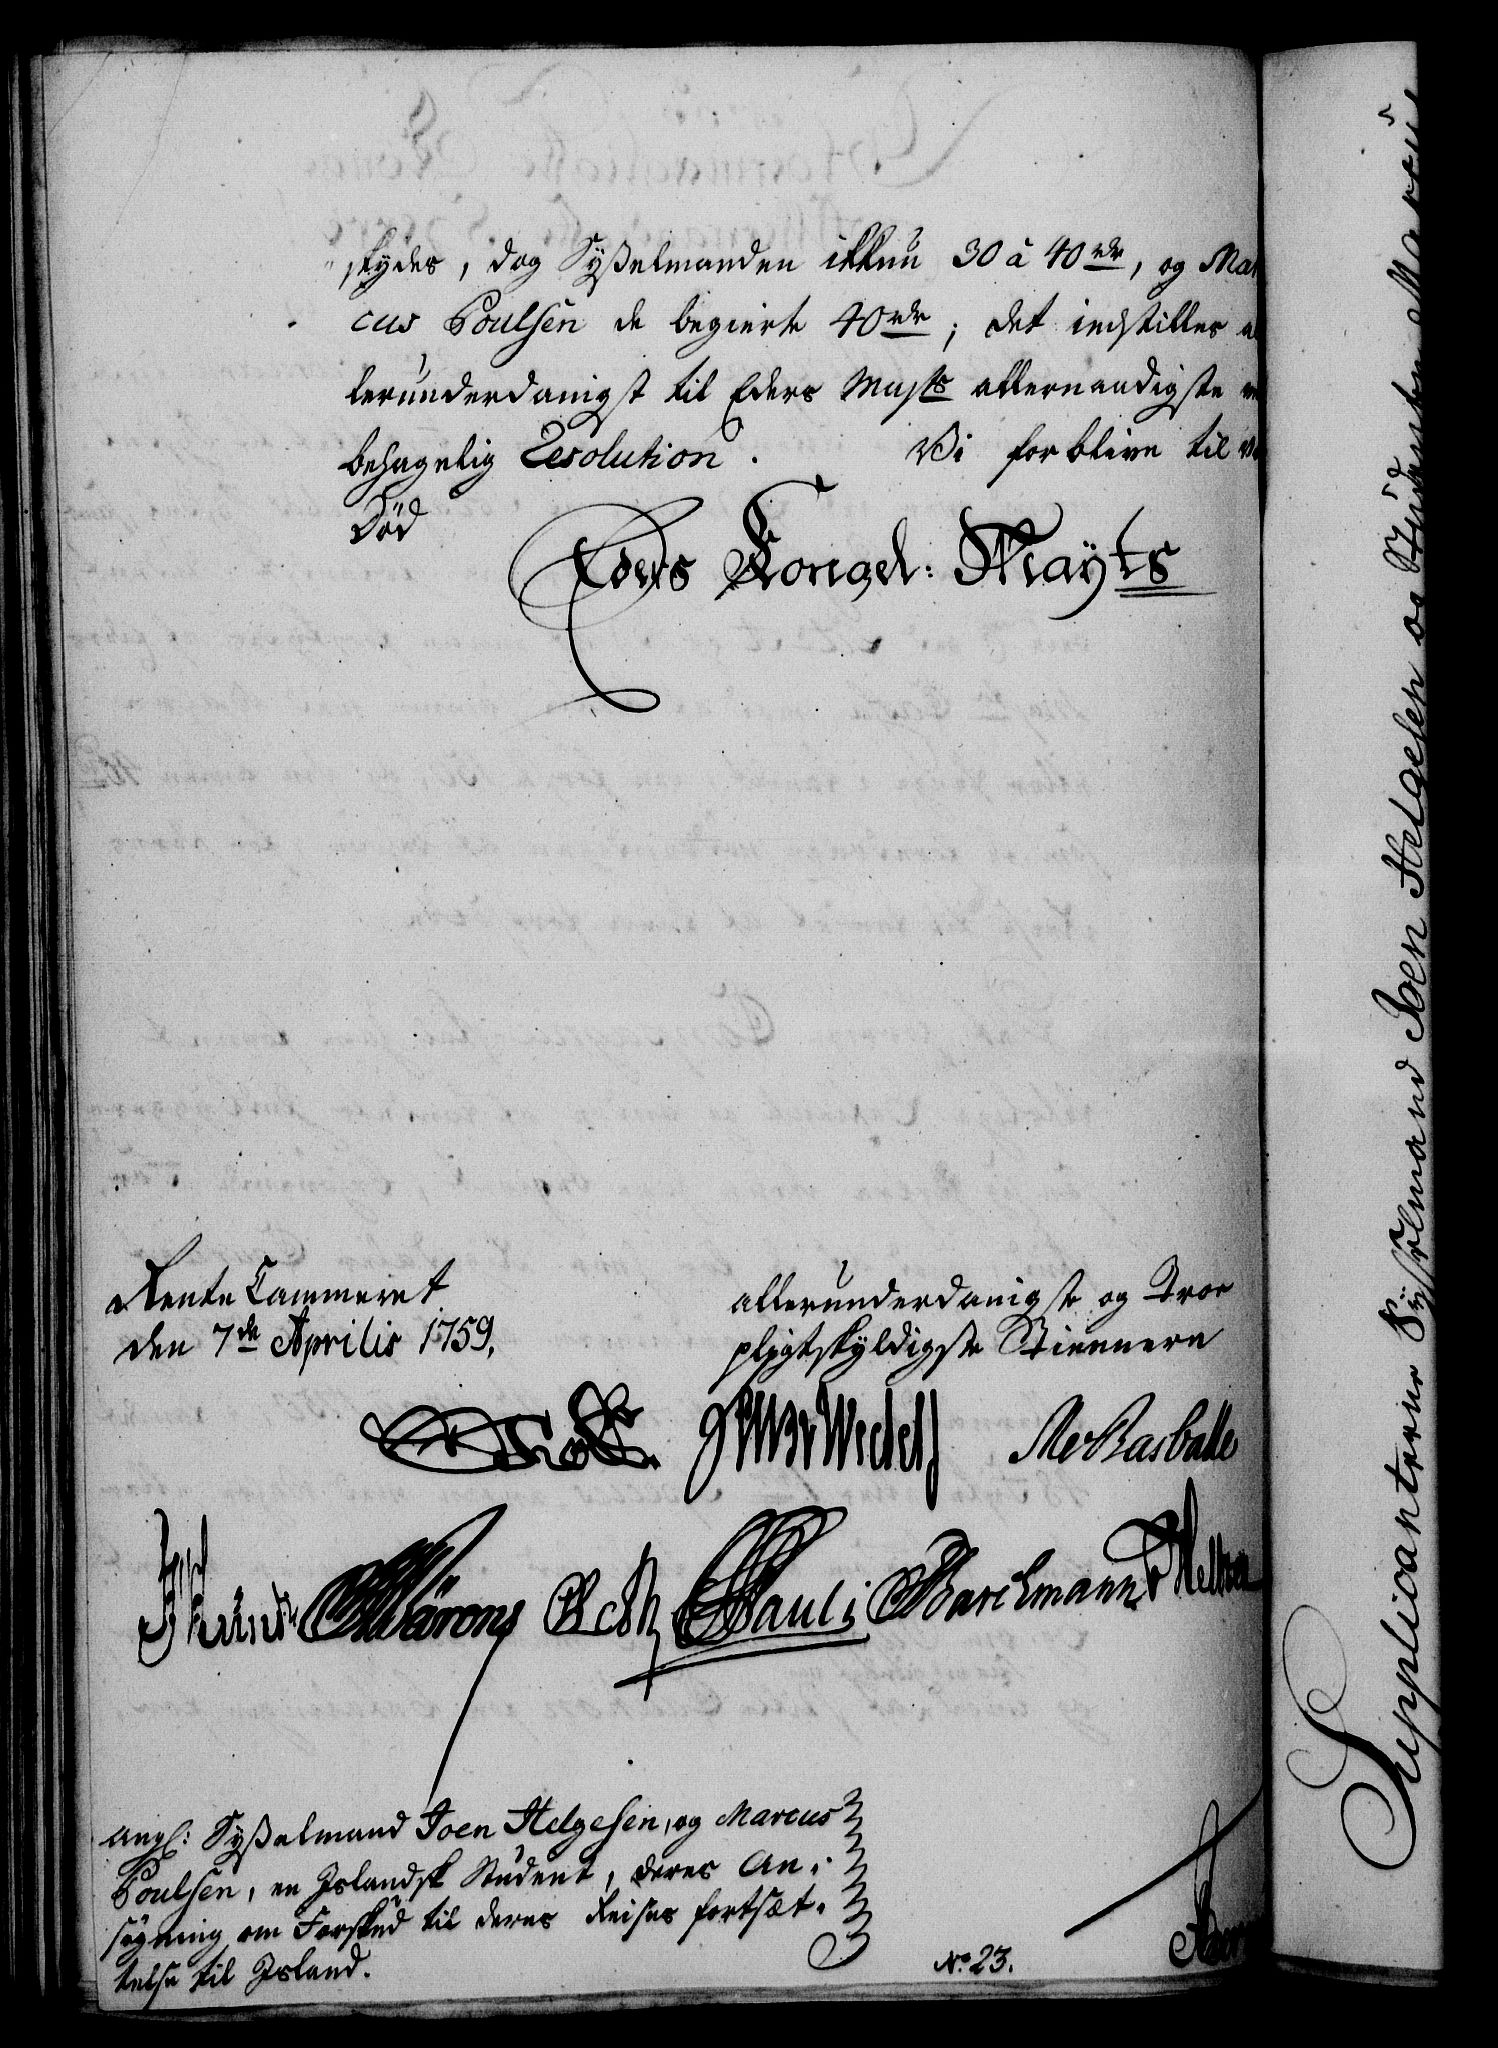 skydes, dog Sysselmanden ikkun 30 à 40 rdr, og Mar
cus Poulsen de begierte 40 rdr; det indstilles al
lerunderdanigst til Eders Maysts allernaadigste
behagelig Resolution. Vi forblive til vor
Død
Eders Kongel: Mayts
Rente Cammeret
den 7de Aprilis 1759.
allerunderdanigste og Troe
pligtskyldigste Tiennere
Wedell
Rasballe
Pauli Barchmann
ang: Sysselmand Joen Helgesen, og Marcus
Poulsen, en Islandsk Student, deres An-
søgning om Forskud til deres Reises fortsæt-
telse til Island.
No 23.
Supplicanterne Sysselmand Joen Helgesen og Studenten Marcus